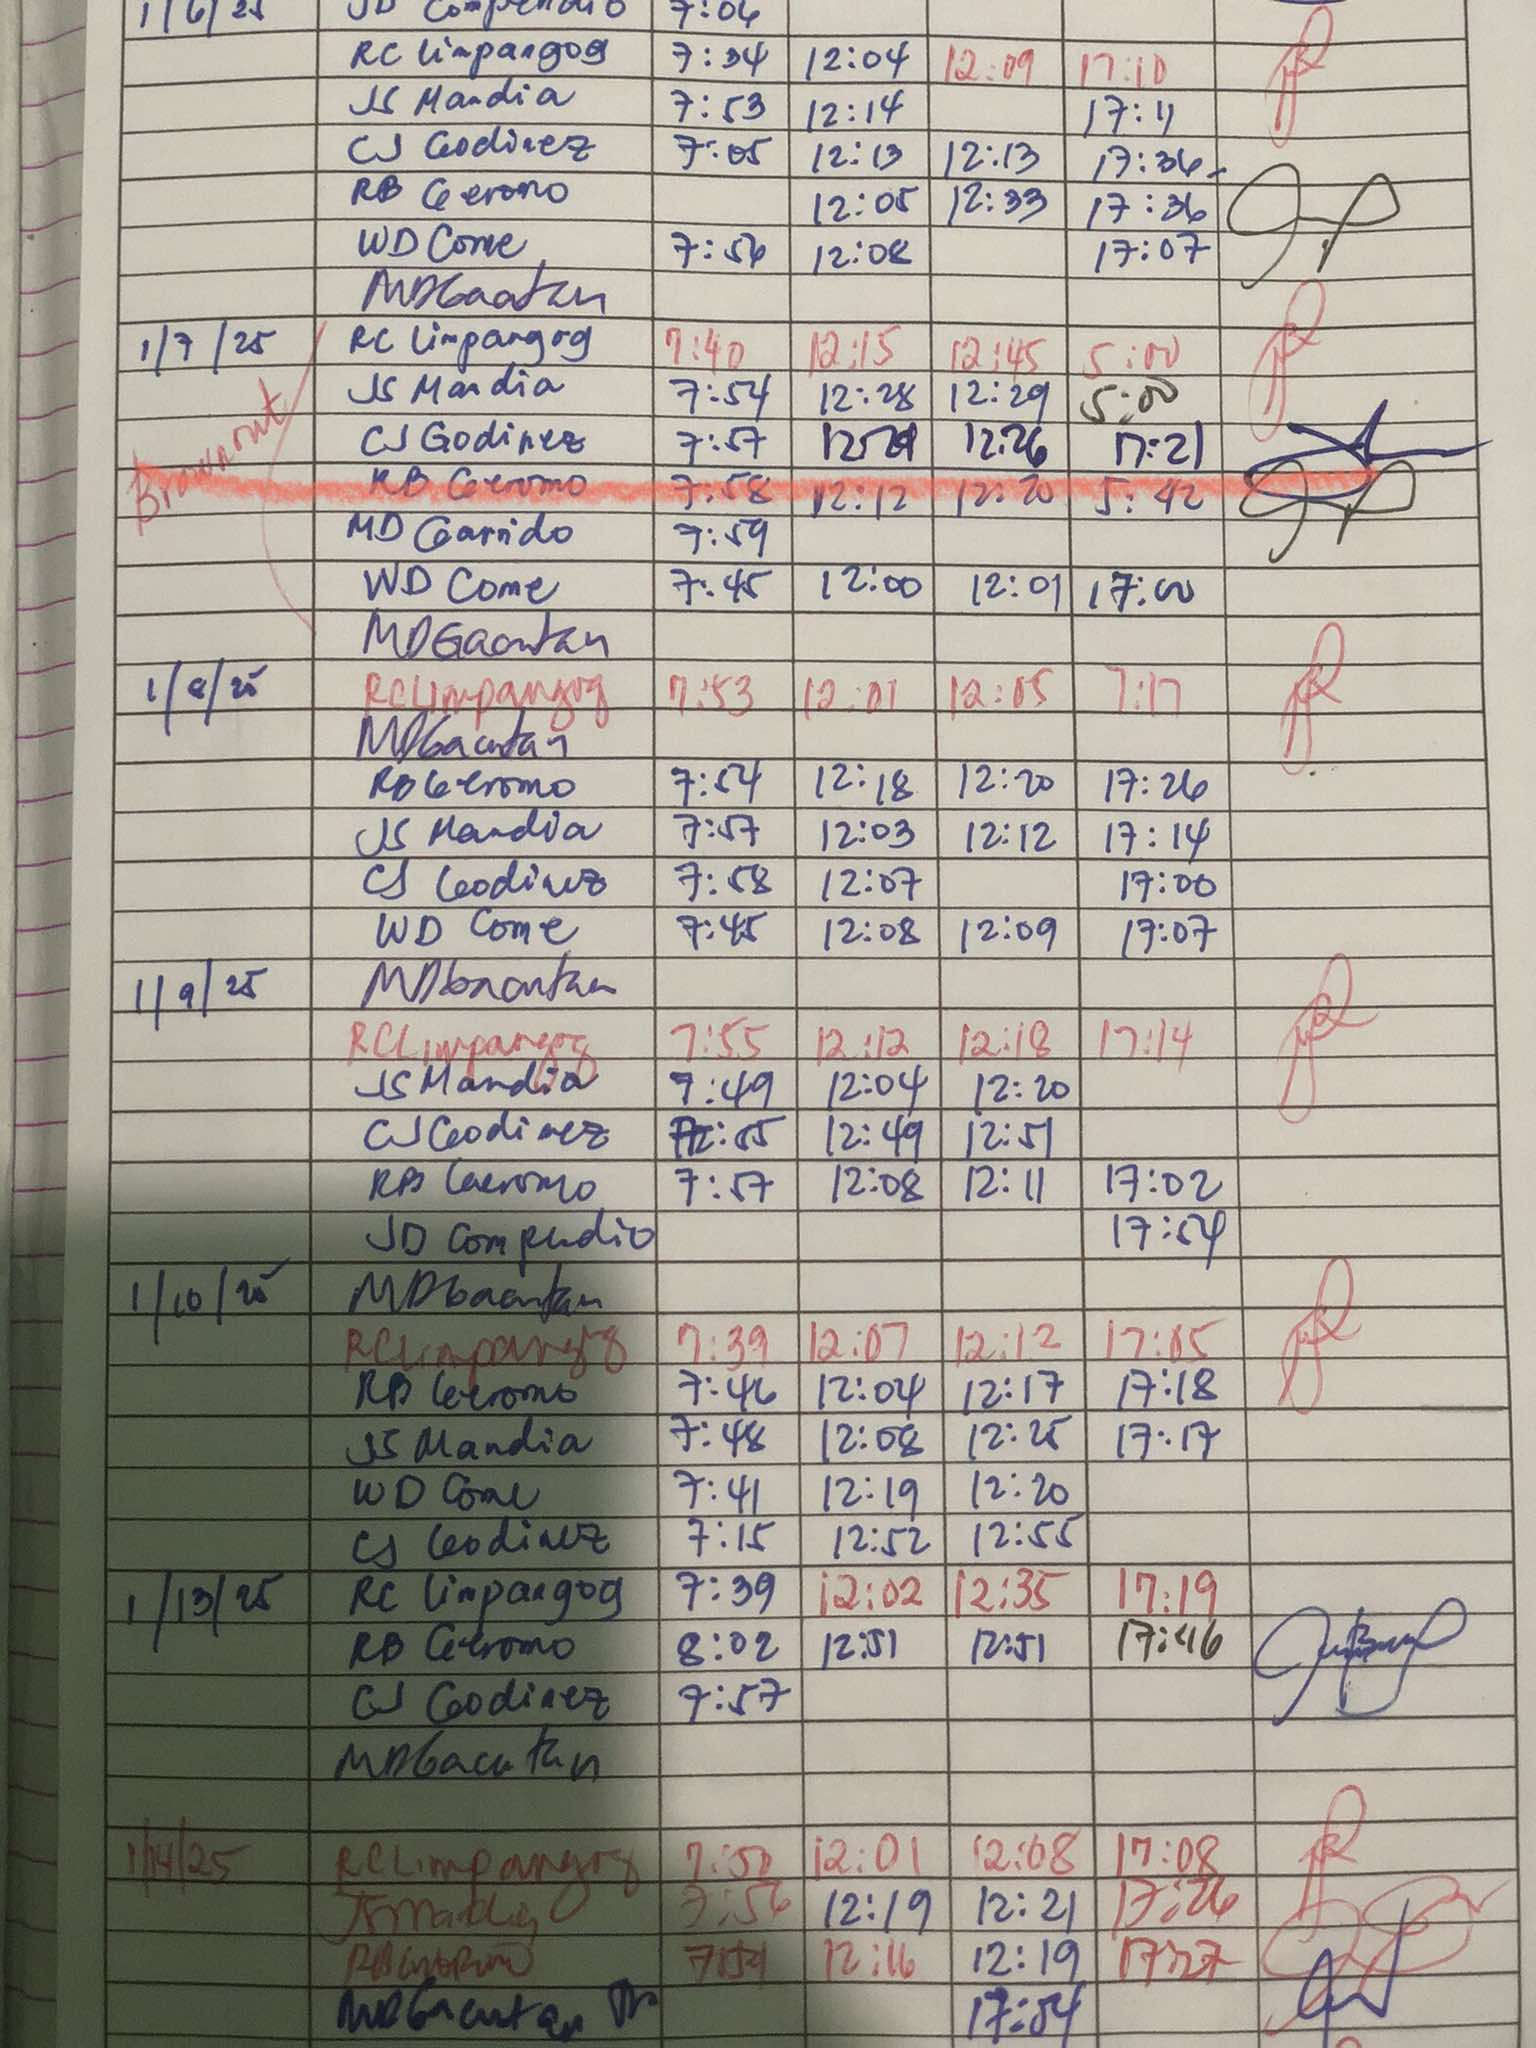 1/6/25 JD Compendio 7:06
RC Limpangog 7:34 12:04 12:09 17:10
JS Mandia 7:53 12:14 17:11
CJ Godinez 7:05 12:13 12:13 17:36
RB Geromo 12:05 12:33 17:36
WD Come 7:56 12:08 17:07
MDGacutan
1/7/25 RC Limpangog 7:40 12:15 12:45 5:00
JS Mandia 7:54 12:28 12:29 5:00
CJ Godinez 7:57 12:26 17:21
Brownout
RB Geromo 7:58 12:12 12:20 5:42
MD Garrido 7:59
WD Come 7:45 12:00 12:01 17:00
MDGacutan
1/8/25 RCLimpangog 7:53 12:01 12:05 7:17
MDGacutan
RB Geromo 7:54 12:18 12:20 17:26
JS Mandia 7:57 12:03 12:12 17:14
CJ Godinez 7:58 12:07 17:00
WD Come 7:45 12:08 12:09 17:07
1/9/25 MDGacutan
RCLimpangog 7:55 12:12 12:18 17:14
JS Mandia 7:49 12:04 12:20
CJ Godinez 12:49 12:51
RB Geromo 7:57 12:08 12:11 17:02
JD Compendio 17:54
1/10/25 MDGacutan
RCLimpangog 7:39 12:07 12:12 17:05
RB Geromo 7:46 12:04 12:17 17:18
JS Mandia 7:48 12:08 12:25 17:17
WD Come 7:41 12:19 12:20
CJ Godinez 7:15 12:52 12:55
1/13/25 RC Limpangog 7:39 12:02 12:35 17:19
RB Geromo 8:02 12:51 12:51 17:46
CJ Godinez 7:57
MDGacutan
1/14/25 RCLimpangog 7:50 12:01 12:08 17:08
JSMandia 7:56 12:19 12:21 17:26
RBGeromo 7:59 12:16 12:19 17:27
MDGacutan 17:54